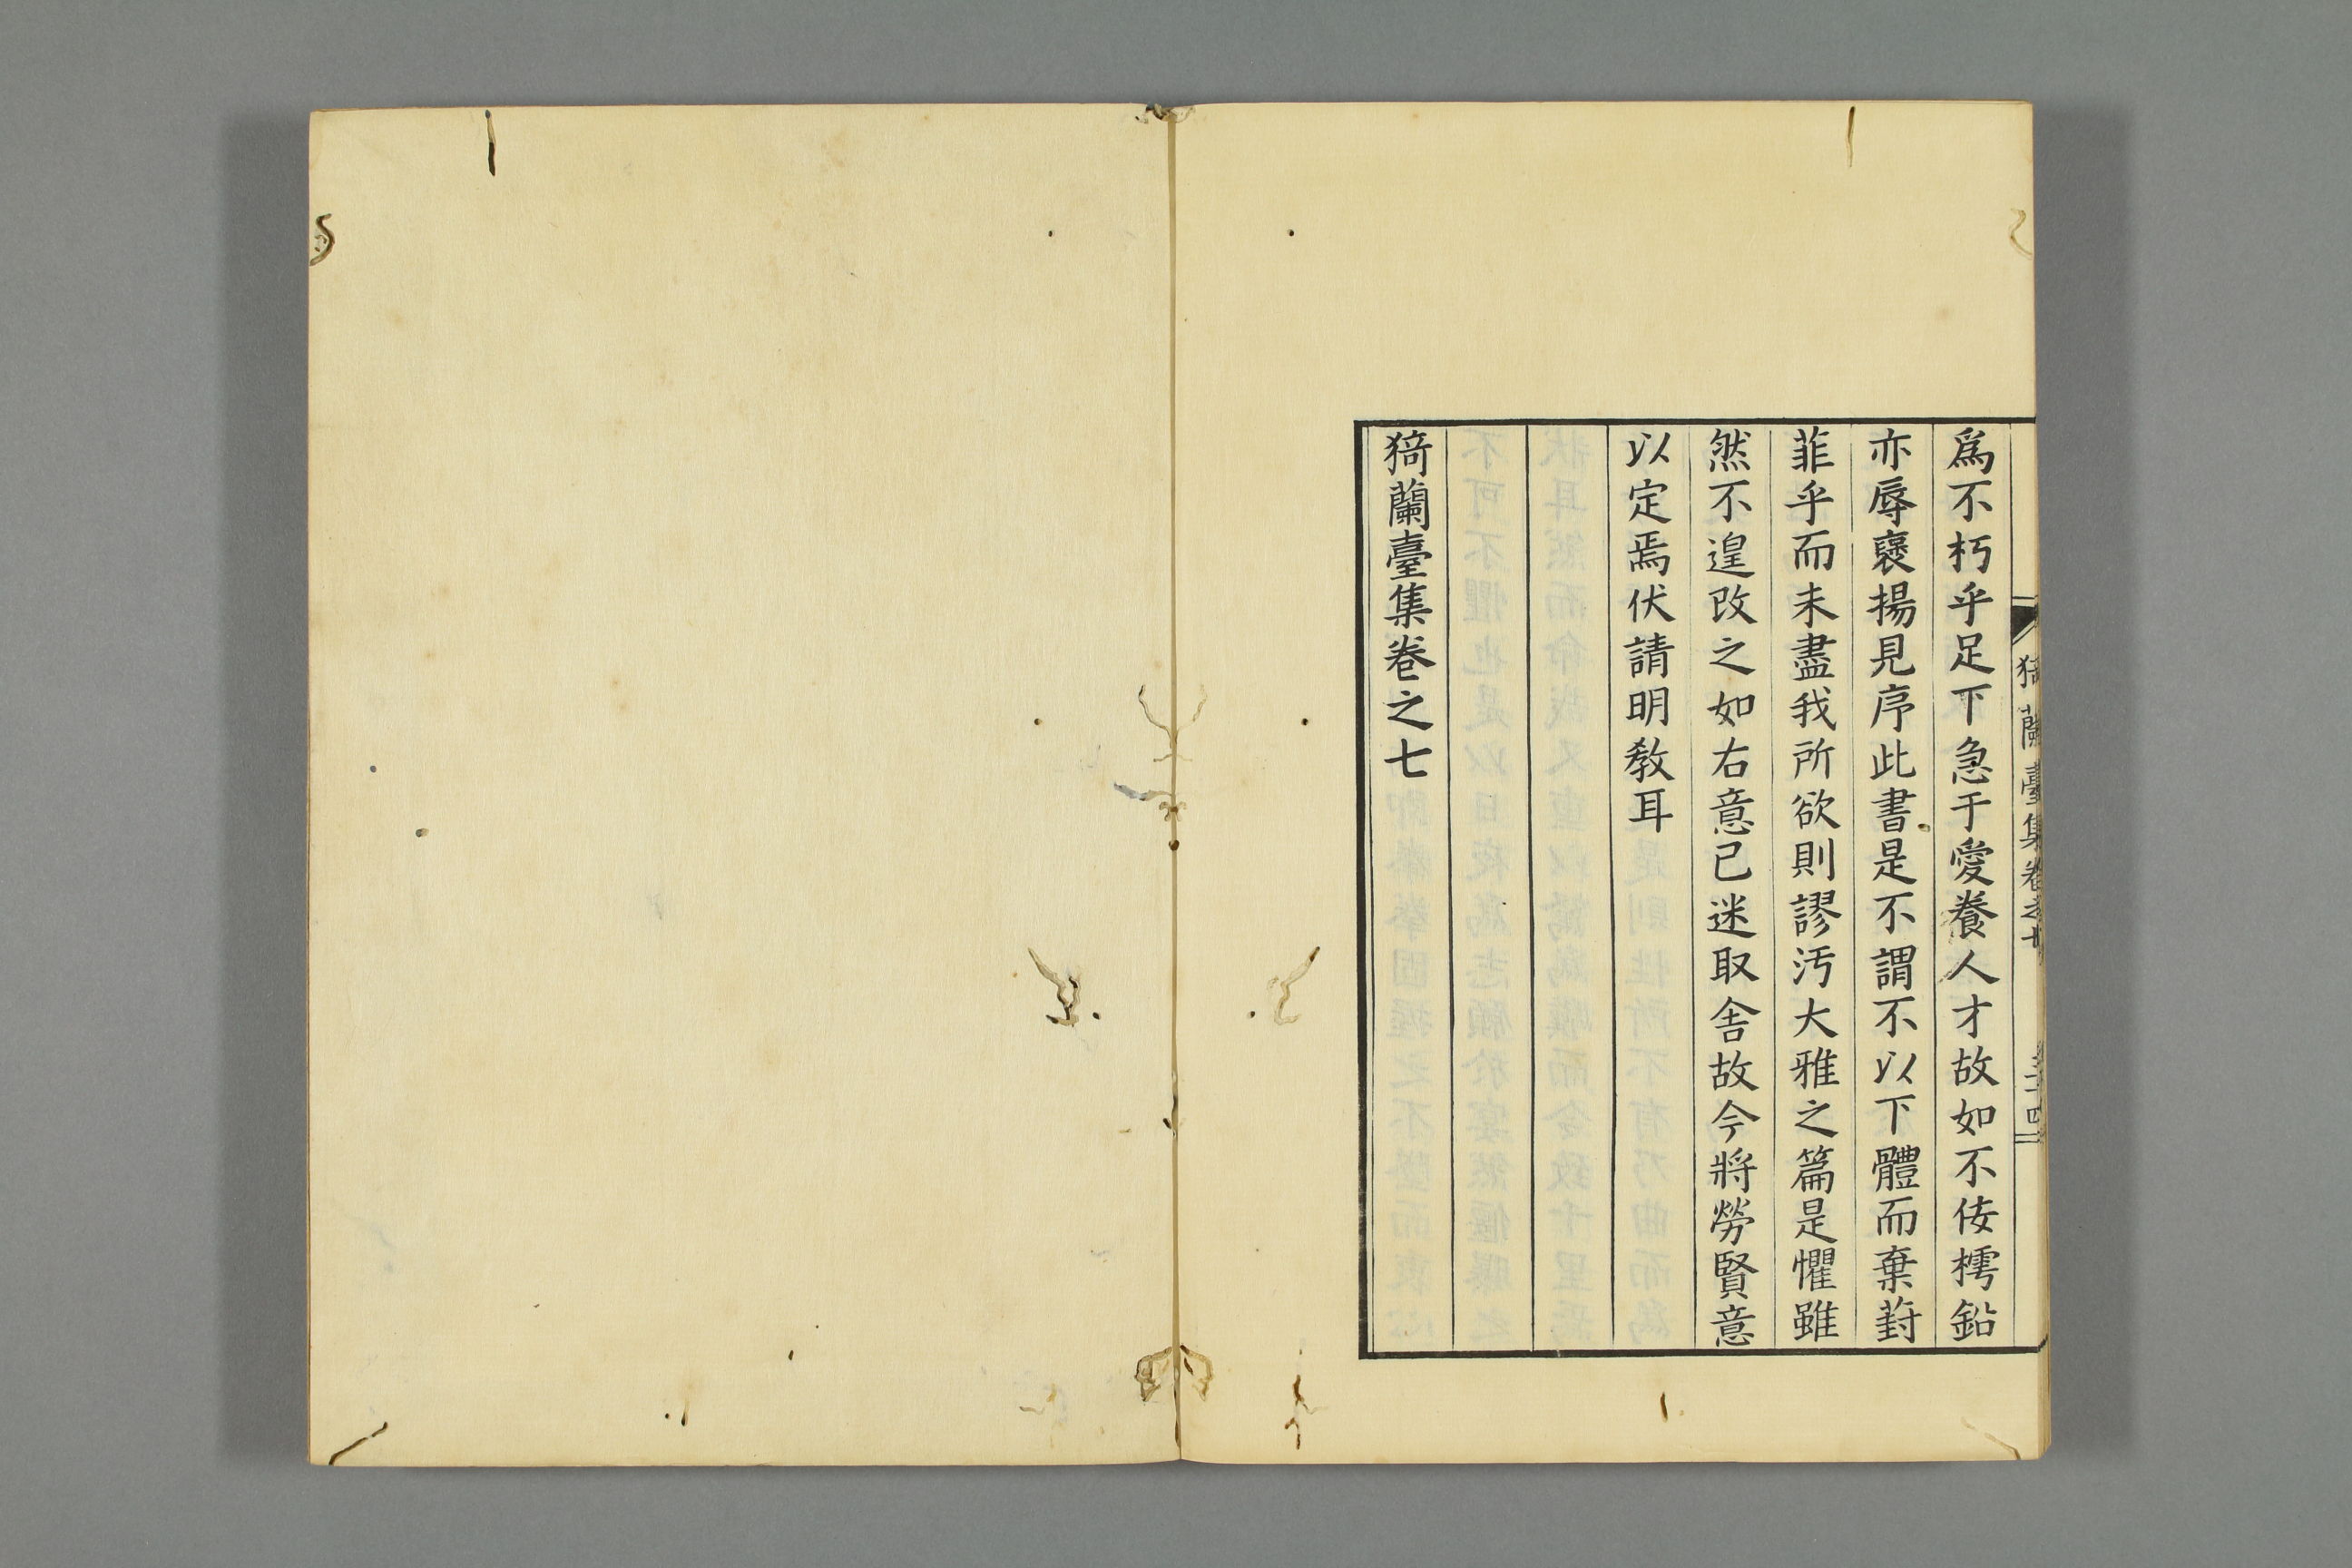 爲不朽乎足下急于愛養人才故如不佞樗鉛
亦辱襃揚見序此書是不謂不以下體而棄葑
菲乎而未盡我所欲則謬汚大雅之篇是懼雖
然不遑改之如右意已迷取舍故今將勞賢意
以定焉伏請明敎耳
猗蘭臺集卷之七
猗蘭臺集卷之七